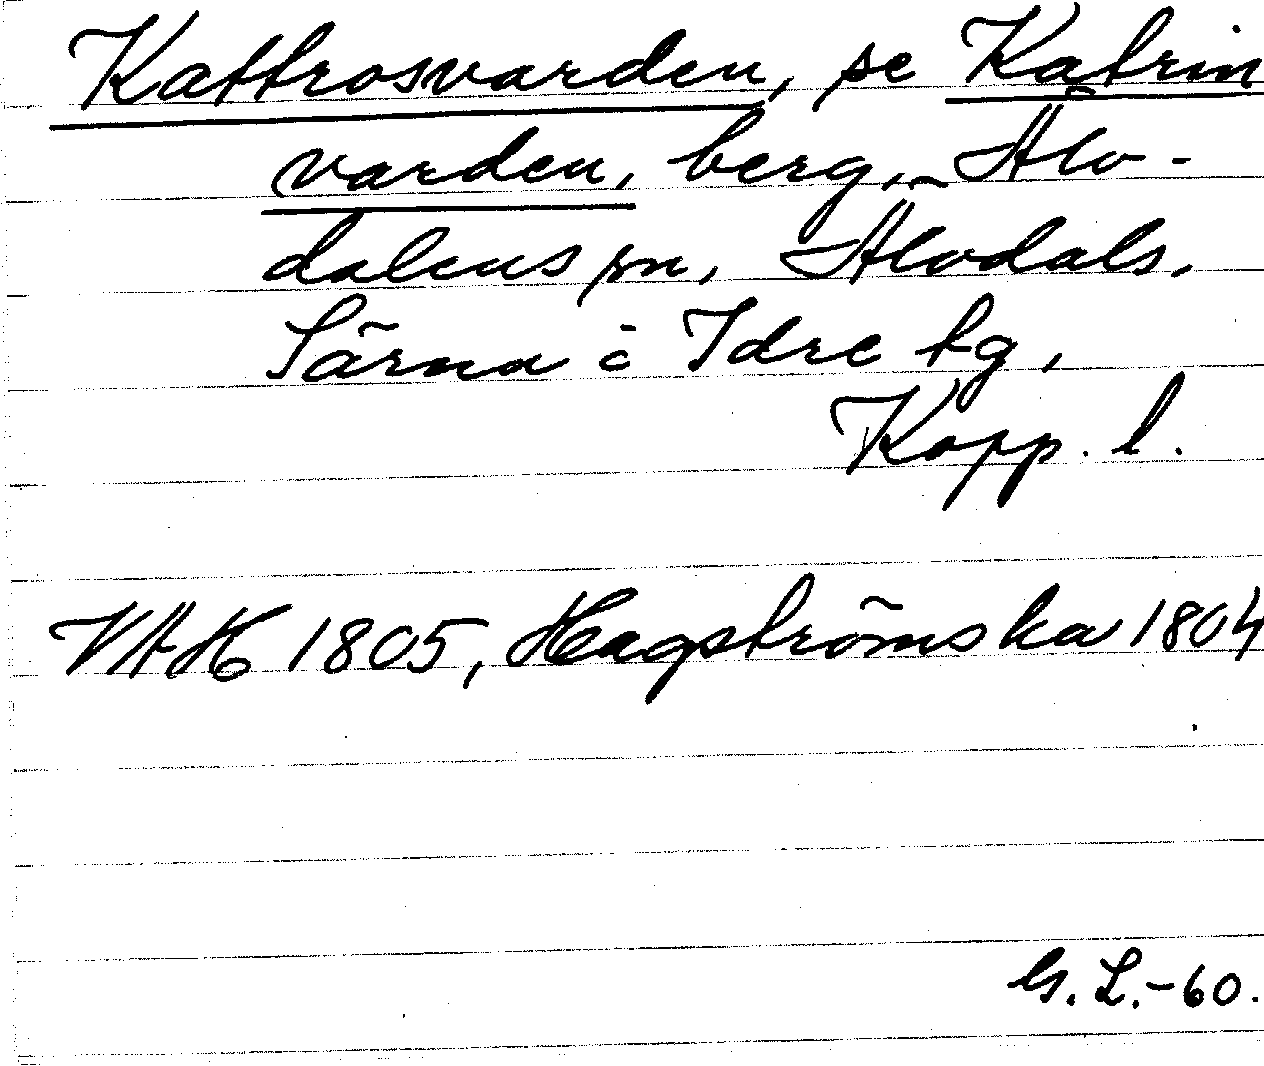 Kattrosvarden, se Katrin
varden, berg, Älv-
dalens sn, Älvdals,
Särna o Idre tg,
Kopp. l.
VAH 1805, Hagströmska 1804
G. L. -60.